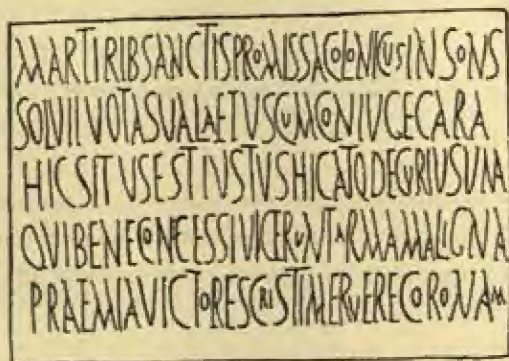 MARTIRIBSANCTISPROMISSACOLONICUSINSONS
SOLVITVOTASUALAETVSCUMCONIVGECARA
HICSITVSESTIVSTVSHICATQDECVRIUSUNA
QVIBENECONFESSIVICERUNTARMAMALIGNA
PRAEMIAVICTORESCRISTIMERVERECORONAM